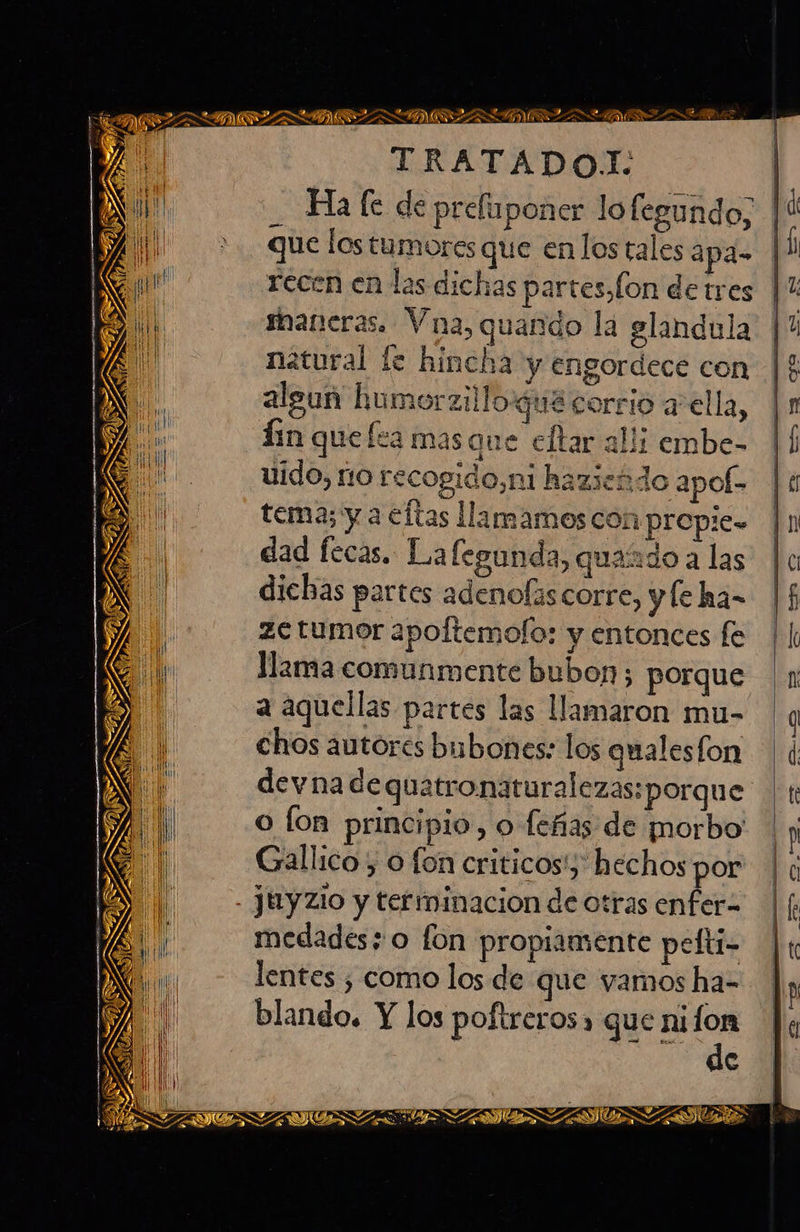 TRATADO.I.
Ha ſe de preſuponer lo ſegundo,
que los tumores que en los tales apa-
recen en las dichas partes, ſon de tres
maneras. Vna, quando la glandula
natural ſe hincha y engordece con
algun humorzillo que corrio a ella,
ſin que ſea mas que eſtar alli embe-
uido, no recogido, ni haziendo apoſ-
tema; y a eſtas llamamos con propie-
dad ſecas. La ſegunda, quando a las
dichas partes adenoſas corre, y ſe ha-
ze tumor apoſtemoſo: y entonces ſe
llama comunmente bubon; porque
a aquellas partes las llamaron mu-
chos autores bubones: los quales ſon
de vna de quatro naturalezas: porque
o ſon principio, o ſeñas de morbo
Gallico, o ſon criticos, hechos por
juyzio y terminacion de otras enfer-
medades: o ſon propiamente peſti-
lentes, como los de que vamos ha-
blando. Y los poſtreros, que ni ſon
de